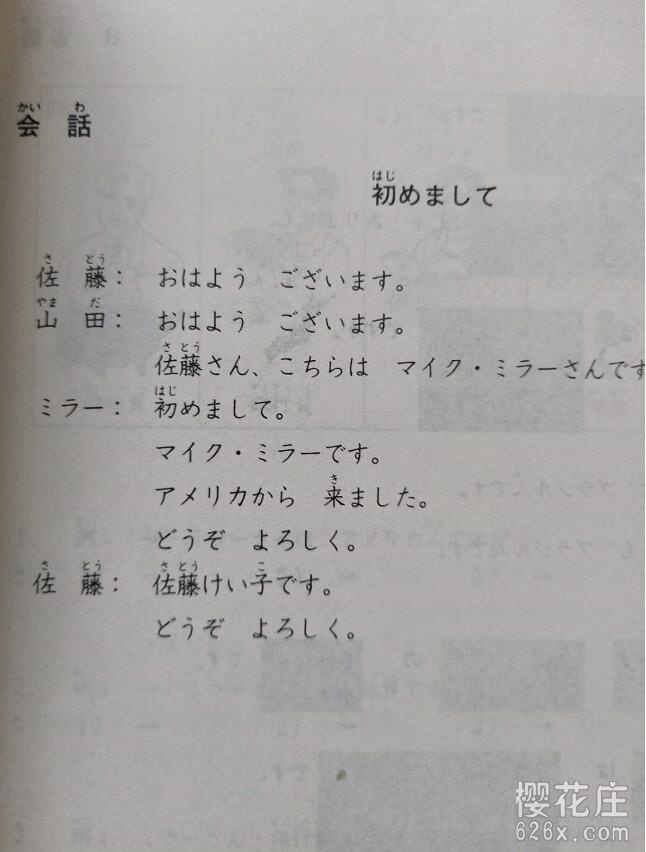 会話
初めまして
佐藤： おはよう ございます。
山田： おはよう ございます。
佐藤さん、こちらは マイク・ミラーさんです
ミラー： 初めまして。
マイク・ミラーです。
アメリカから 来ました。
どうぞ よろしく。
佐藤： 佐藤けい子です。
どうぞ よろしく。
樱花庄
626x.com